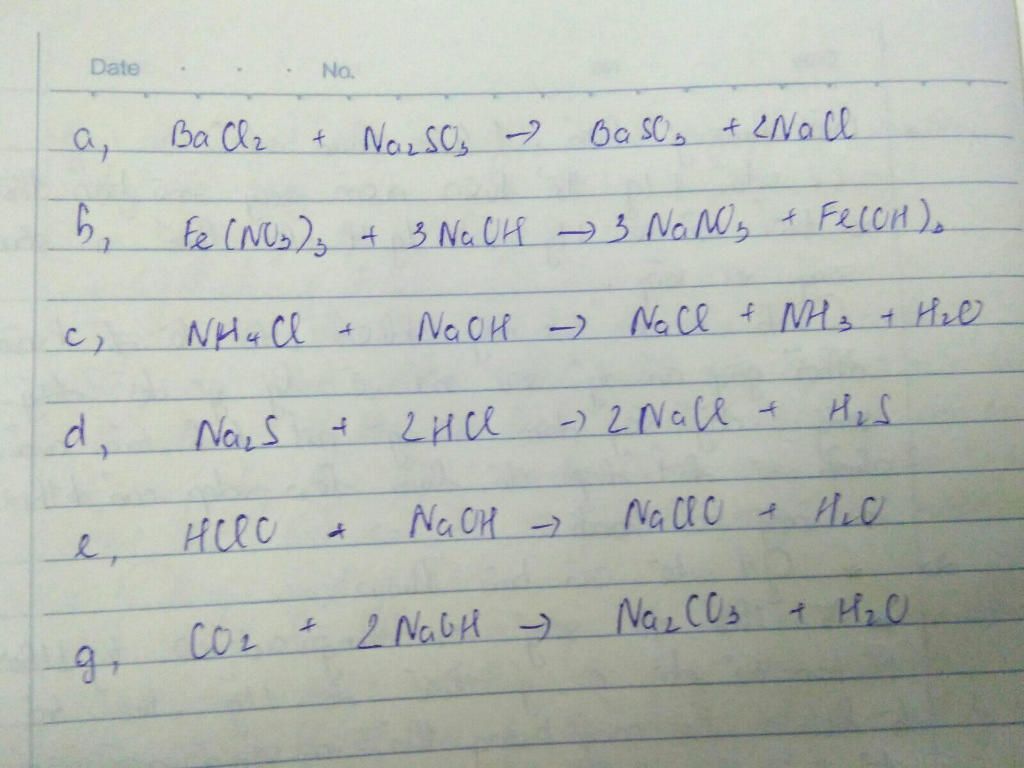 Date . . . No.
a, BaCl₂ + Na₂SO₃ → BaSO₃ + 2NaCl
b, Fe(NO₃)₃ + 3NaOH → 3NaNO₃ + Fe(OH)₃
c, NH₄Cl + NaOH → NaCl + NH₃ + H₂O
d, Na₂S + 2HCl → 2NaCl + H₂S
e, HClO + NaOH → NaClO + H₂O
g, CO₂ + 2NaOH → Na₂CO₃ + H₂O